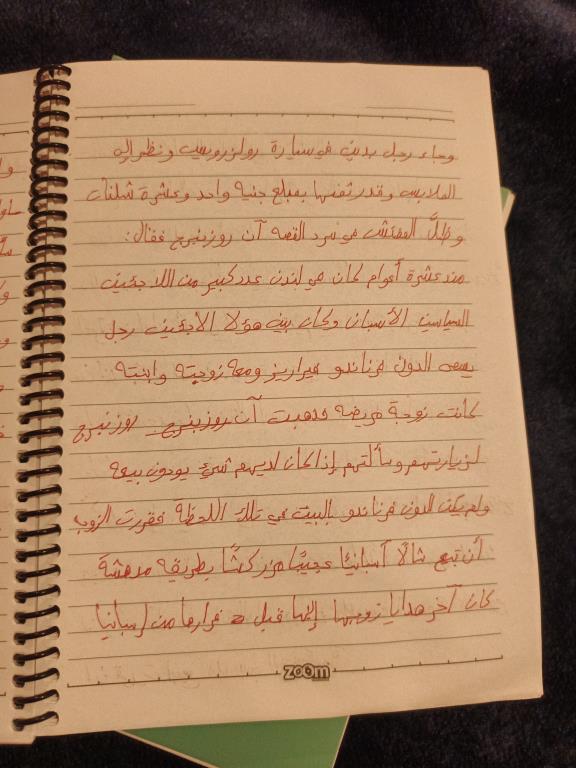 وجاء رجل بدين في سيارة رولزرويس ونظر إلى
الملابس وقدر ثمنها بمبلغ جنيه واحد وعشرة شلنات
وظلَّ المفتش في سرد القصه آن روزنبرج فقال:
منذ عشرة أعوام كان في لندن عدد كبير من اللاجئين
السياسين الأسبان وكان بين هؤلا الاجئين رجل
يسمى الدون فرناندو فيراريز ومعه زوجته وابنته
كانت زوجة مريضه فذهبت آن روزنبرج روزنبرج
لزيارتهم وسألتهم إذا كان لديهم شيء يودون بيعه
ولم يكن الدون فرناندو بالبيت في تلك اللحظة فقررت الزوجه
أن تبيع شالًا أسبانيًا عجيبًا مزركشًا بطريقه مدهشة
كان آخر هدايا زوجها إليها قبل فرارها من إسبانيا
zoom